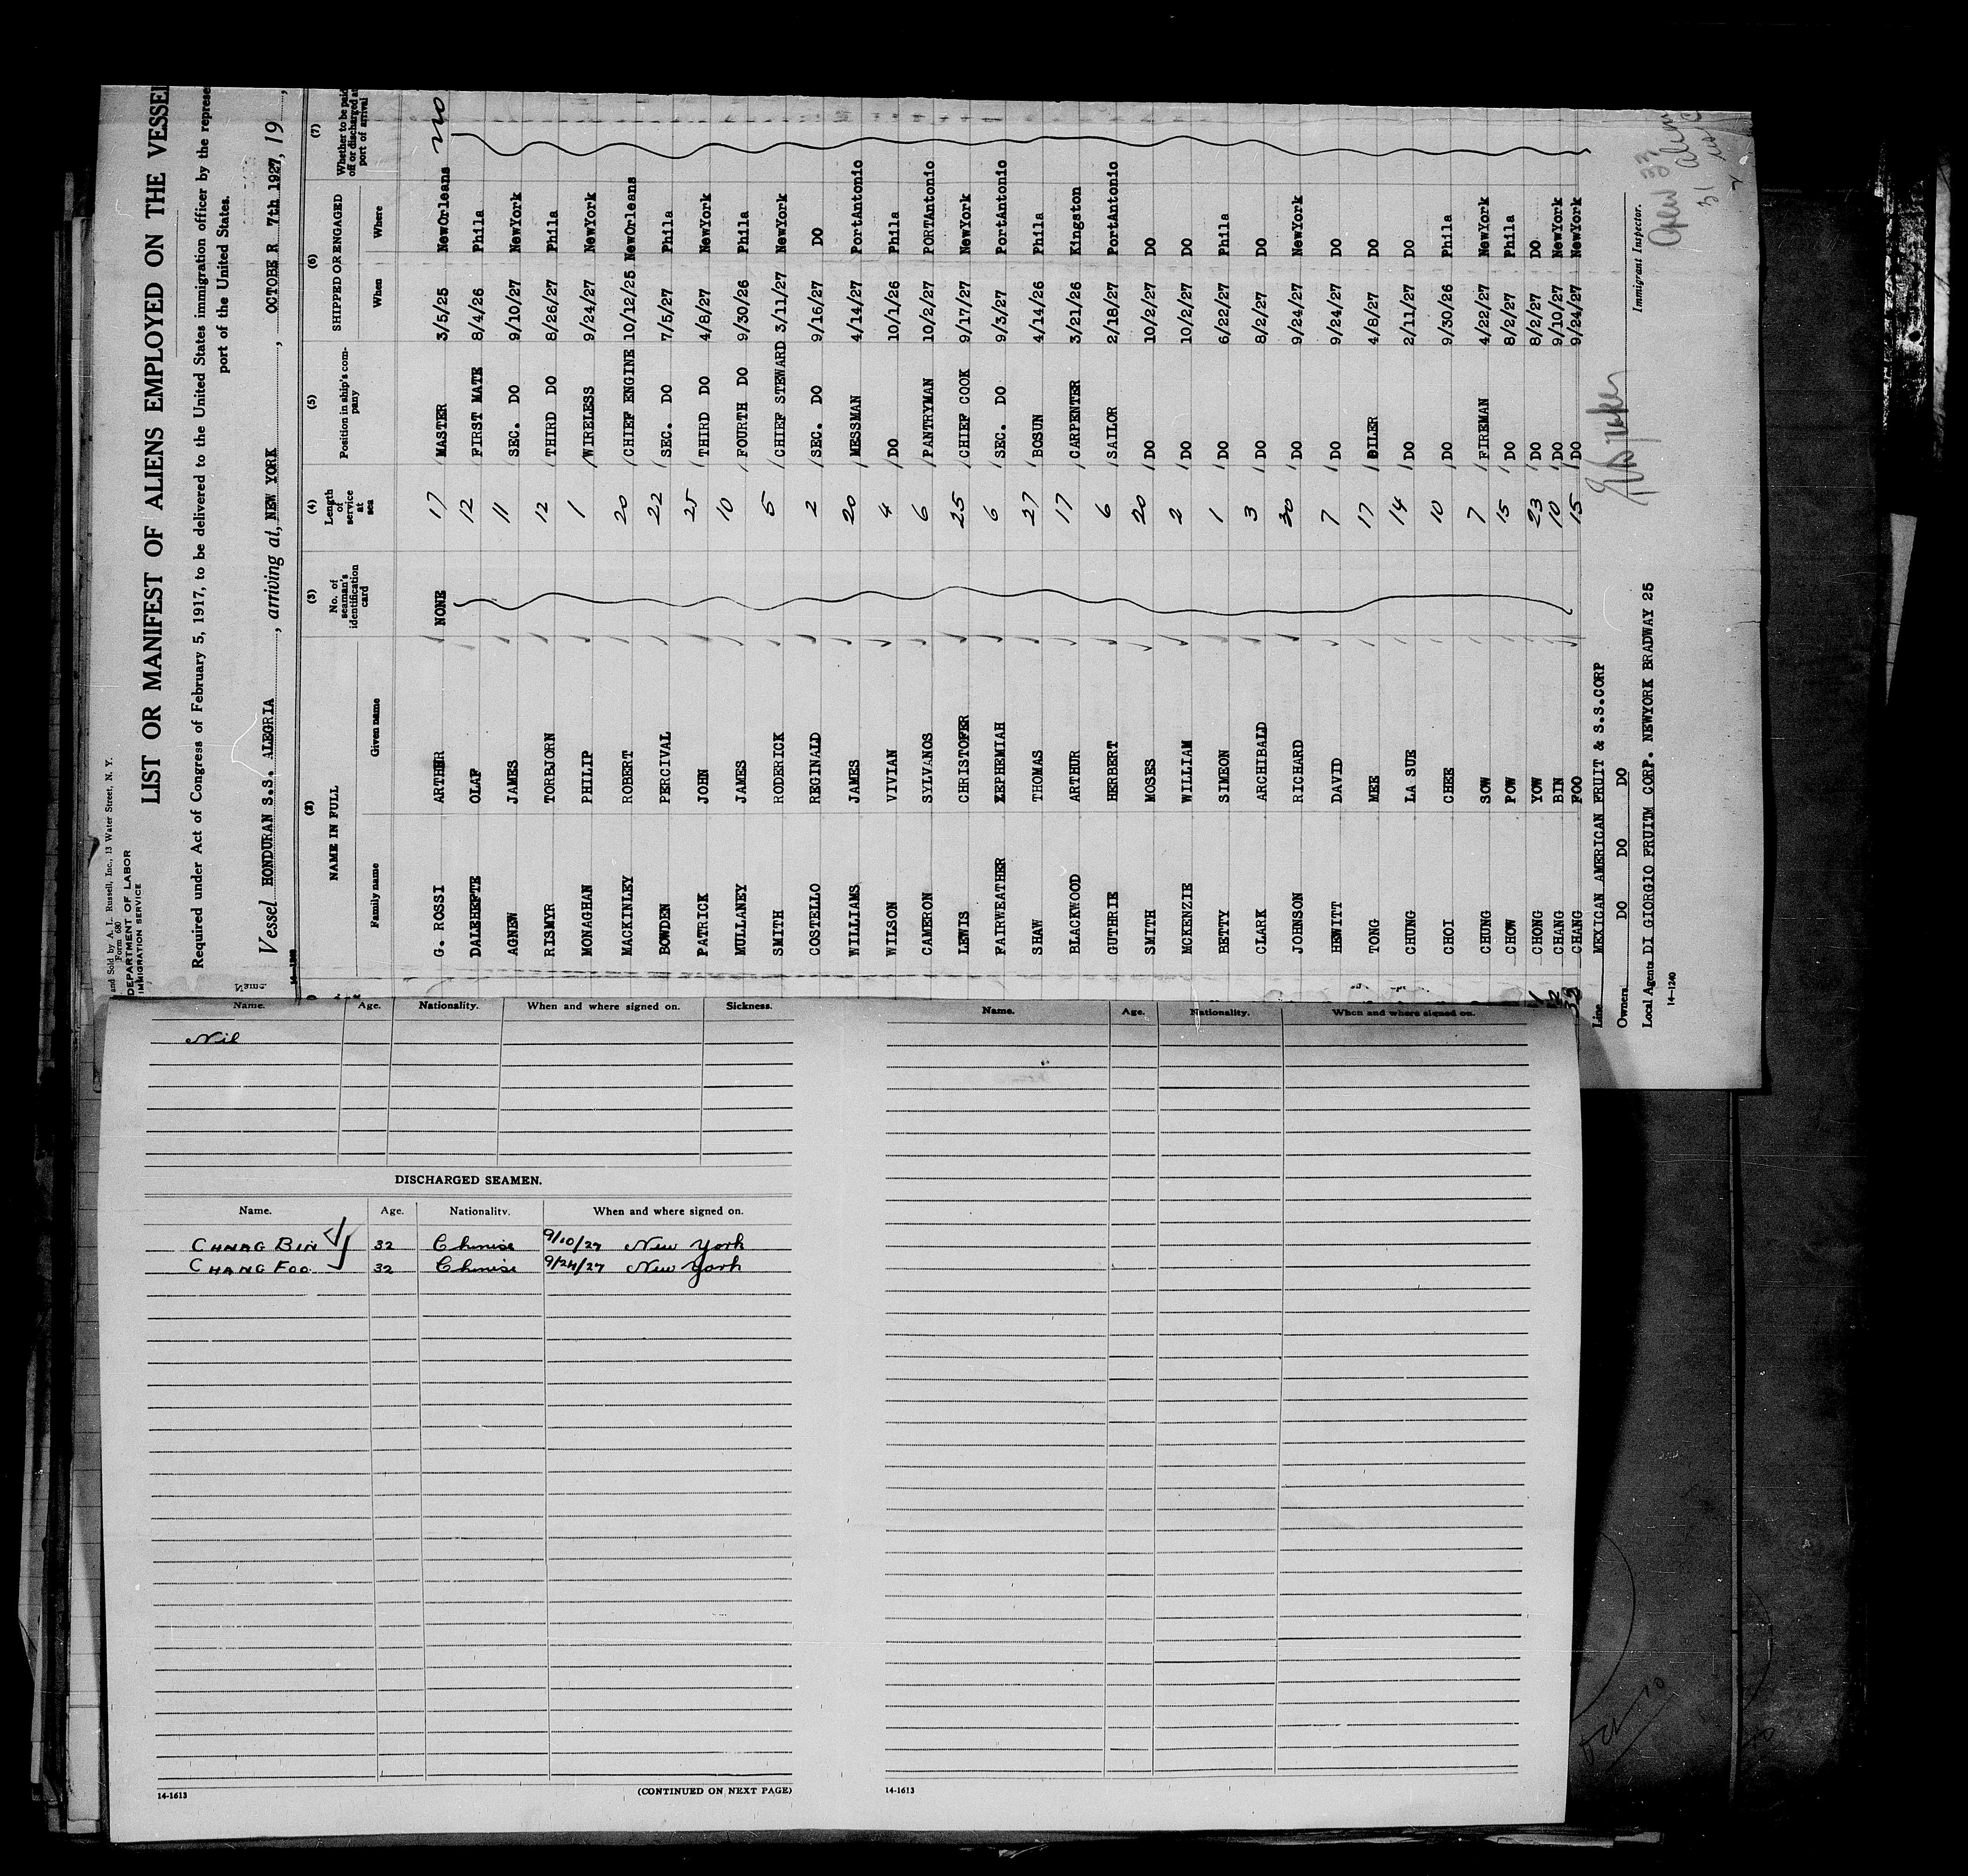 and Sold by A. L. Russell, Inc., 13 Water Street, N. Y.
Form 680
DEPARTMENT OF LABOR
IMMIGRATION SERVICE
LIST OR MANIFEST OF ALIENS EMPLOYED ON THE VESSEL
Required under Act of Congress of February 5, 1917, to be delivered to the United States immigration officer by the represe
port of the United States.
Vessel HONDURAN S.S. ALEGRIA, arriving at, NEW YORK, OCTOBER 7th 1927, 19
(2) (3) (4) (5) (6) (7)
NAME IN FULL No. of seaman's identification card Length of service at sea Position in ship's company SHIPPED OR ENGAGED Whether to be paid off or discharged at port of arrival
Family name Given name When Where
G. ROSSI ARTHUR NONE 17 MASTER 3/5/25 NewOrleans no
DALEHEFTE OLAF 12 FIRST MATE 8/4/26 Phila
AGNEW JAMES 11 SEC. DO 9/10/27 NewYork
RISMYR TORBJORN 12 THIRD DO 8/26/27 Phila
MONAGHAN PHILIP 1 WIRELESS 9/24/27 NewYork
MACKINLEY ROBERT 20 CHIEF ENGINE 10/12/25 NewOrleans
BOWDEN PERCIVAL 22 SEC. DO 7/5/27 Phila
PATRICK JOHN 25 THIRD DO 4/8/27 NewYork
MULLANEY JAMES 10 FOURTH DO 9/30/26 Phila
SMITH RODERICK 5 CHIEF STEWARD 3/11/27 NewYork
COSTELLO REGINALD 2 SEC. DO 9/16/27 DO
WILLIAMS JAMES 20 MESSMAN 4/14/27 PortAntonio
WILSON VIVIAN 4 DO 10/1/26 Phila
CAMERON SYLVANOS 6 PANTRYMAN 10/2/27 PORTAntonio
LEWIS CHRISTOFER 25 CHIEF COOK 9/17/27 NewYork
FAIRWEATHER ZEPHEMIAH 6 SEC. DO 9/3/27 PortAntonio
SHAW THOMAS 27 BOSUN 4/14/26 Phila
BLACKWOOD ARTHUR 17 CARPENTER 3/21/26 Kingston
GUTHRIE HERBERT 6 SAILOR 2/18/27 PortAntonio
SMITH MOSES 20 DO 10/2/27 DO
MCKENZIE WILLIAM 2 DO 10/2/27 DO
BETTY SIMEON 1 DO 6/22/27 Phila
CLARK ARCHIBALD 3 DO 8/2/27 DO
JOHNSON RICHARD 30 DO 9/24/27 NewYork
HEWITT DAVID 7 DO 9/24/27 DO
TONG MEE 17 OILER 4/8/27 DO
CHUNG LA SUE 14 DO 2/11/27 DO
CHOI CHEE 10 DO 9/30/26 Phila
CHUNG SOW 7 FIREMAN 4/22/27 NewYork
CHOW POW 15 DO 8/2/27 Phila
CHONG YOW 23 DO 8/2/27 DO
CHANG BIN 10 DO 9/10/27 NewYork
CHANG FOO 15 DO 9/24/27 NewYork
Line MEXICAN AMERICAN FRUIT & S.S.CORP
Owners DO DO DO
Immigrant Inspector.
Local Agents DI GIORGIO FRUITM CORP. NEWYORK BRADWAY 25
14-1240
Name. Age. Nationality. When and where signed on. Sickness.
Nil
DISCHARGED SEAMEN.
Name. Age. Nationality. When and where signed on.
CHNAG BIN 32 Chinise 9/10/27 New York
CHANG FOO. 32 Chinise 9/24/27 New York
14-1613 (CONTINUED ON NEXT PAGE)
Name. Age. Nationality. When and where signed on.
14-1613